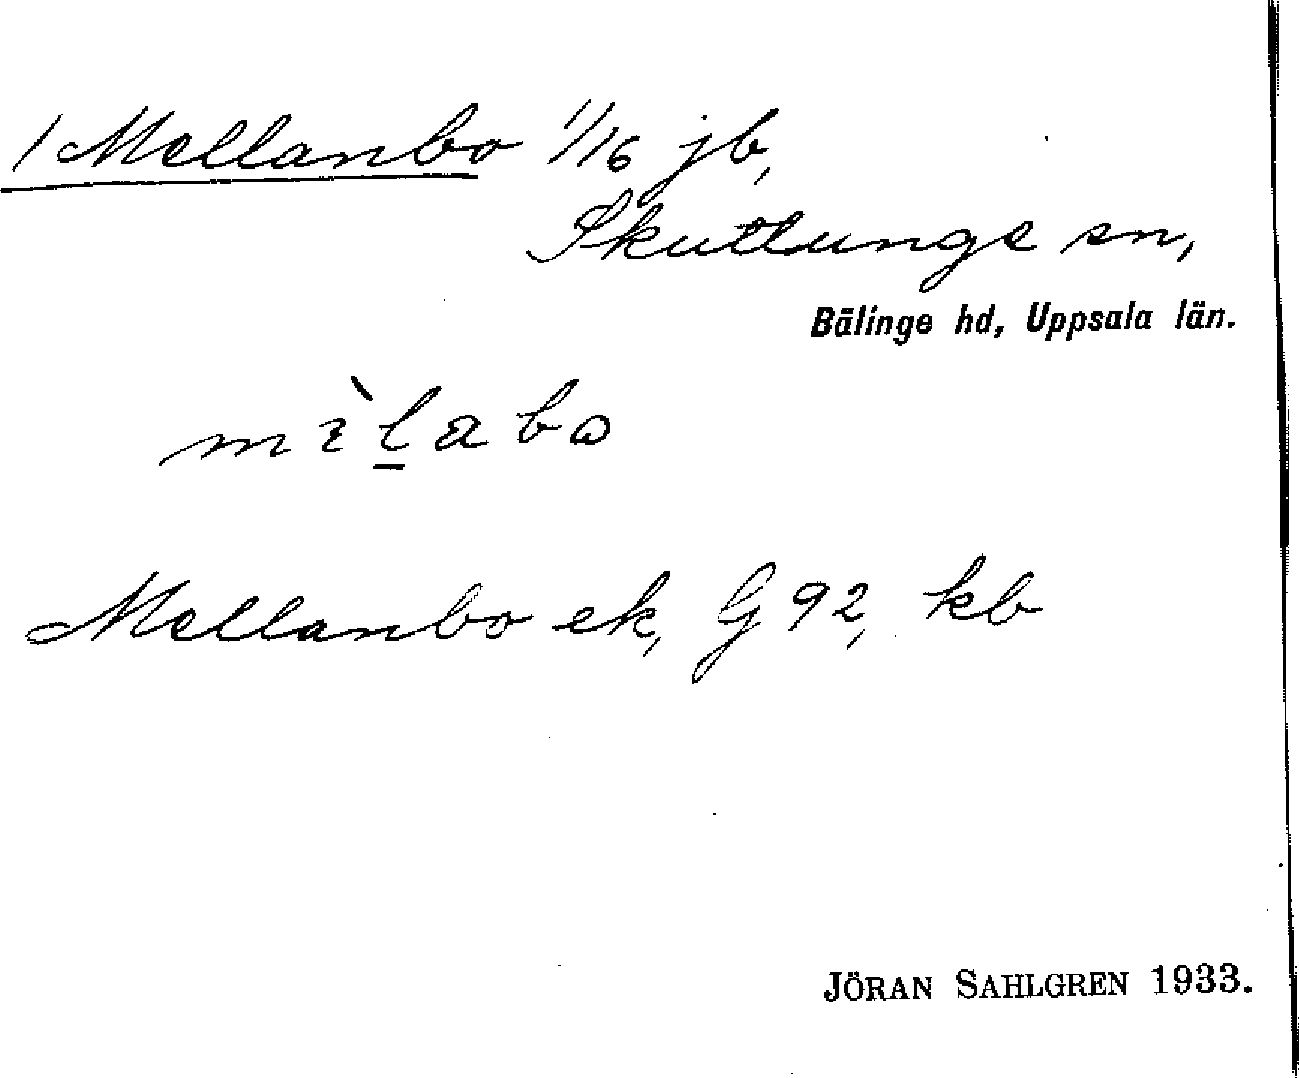 1 Mellanbo 1/16 jb,
Skuttunge sn,
Bälinge hd, Uppsala län.
mɪ̀l̲abo
Mellanbo ek, G 92, kb
JÖRAN SAHLGREN 1933.